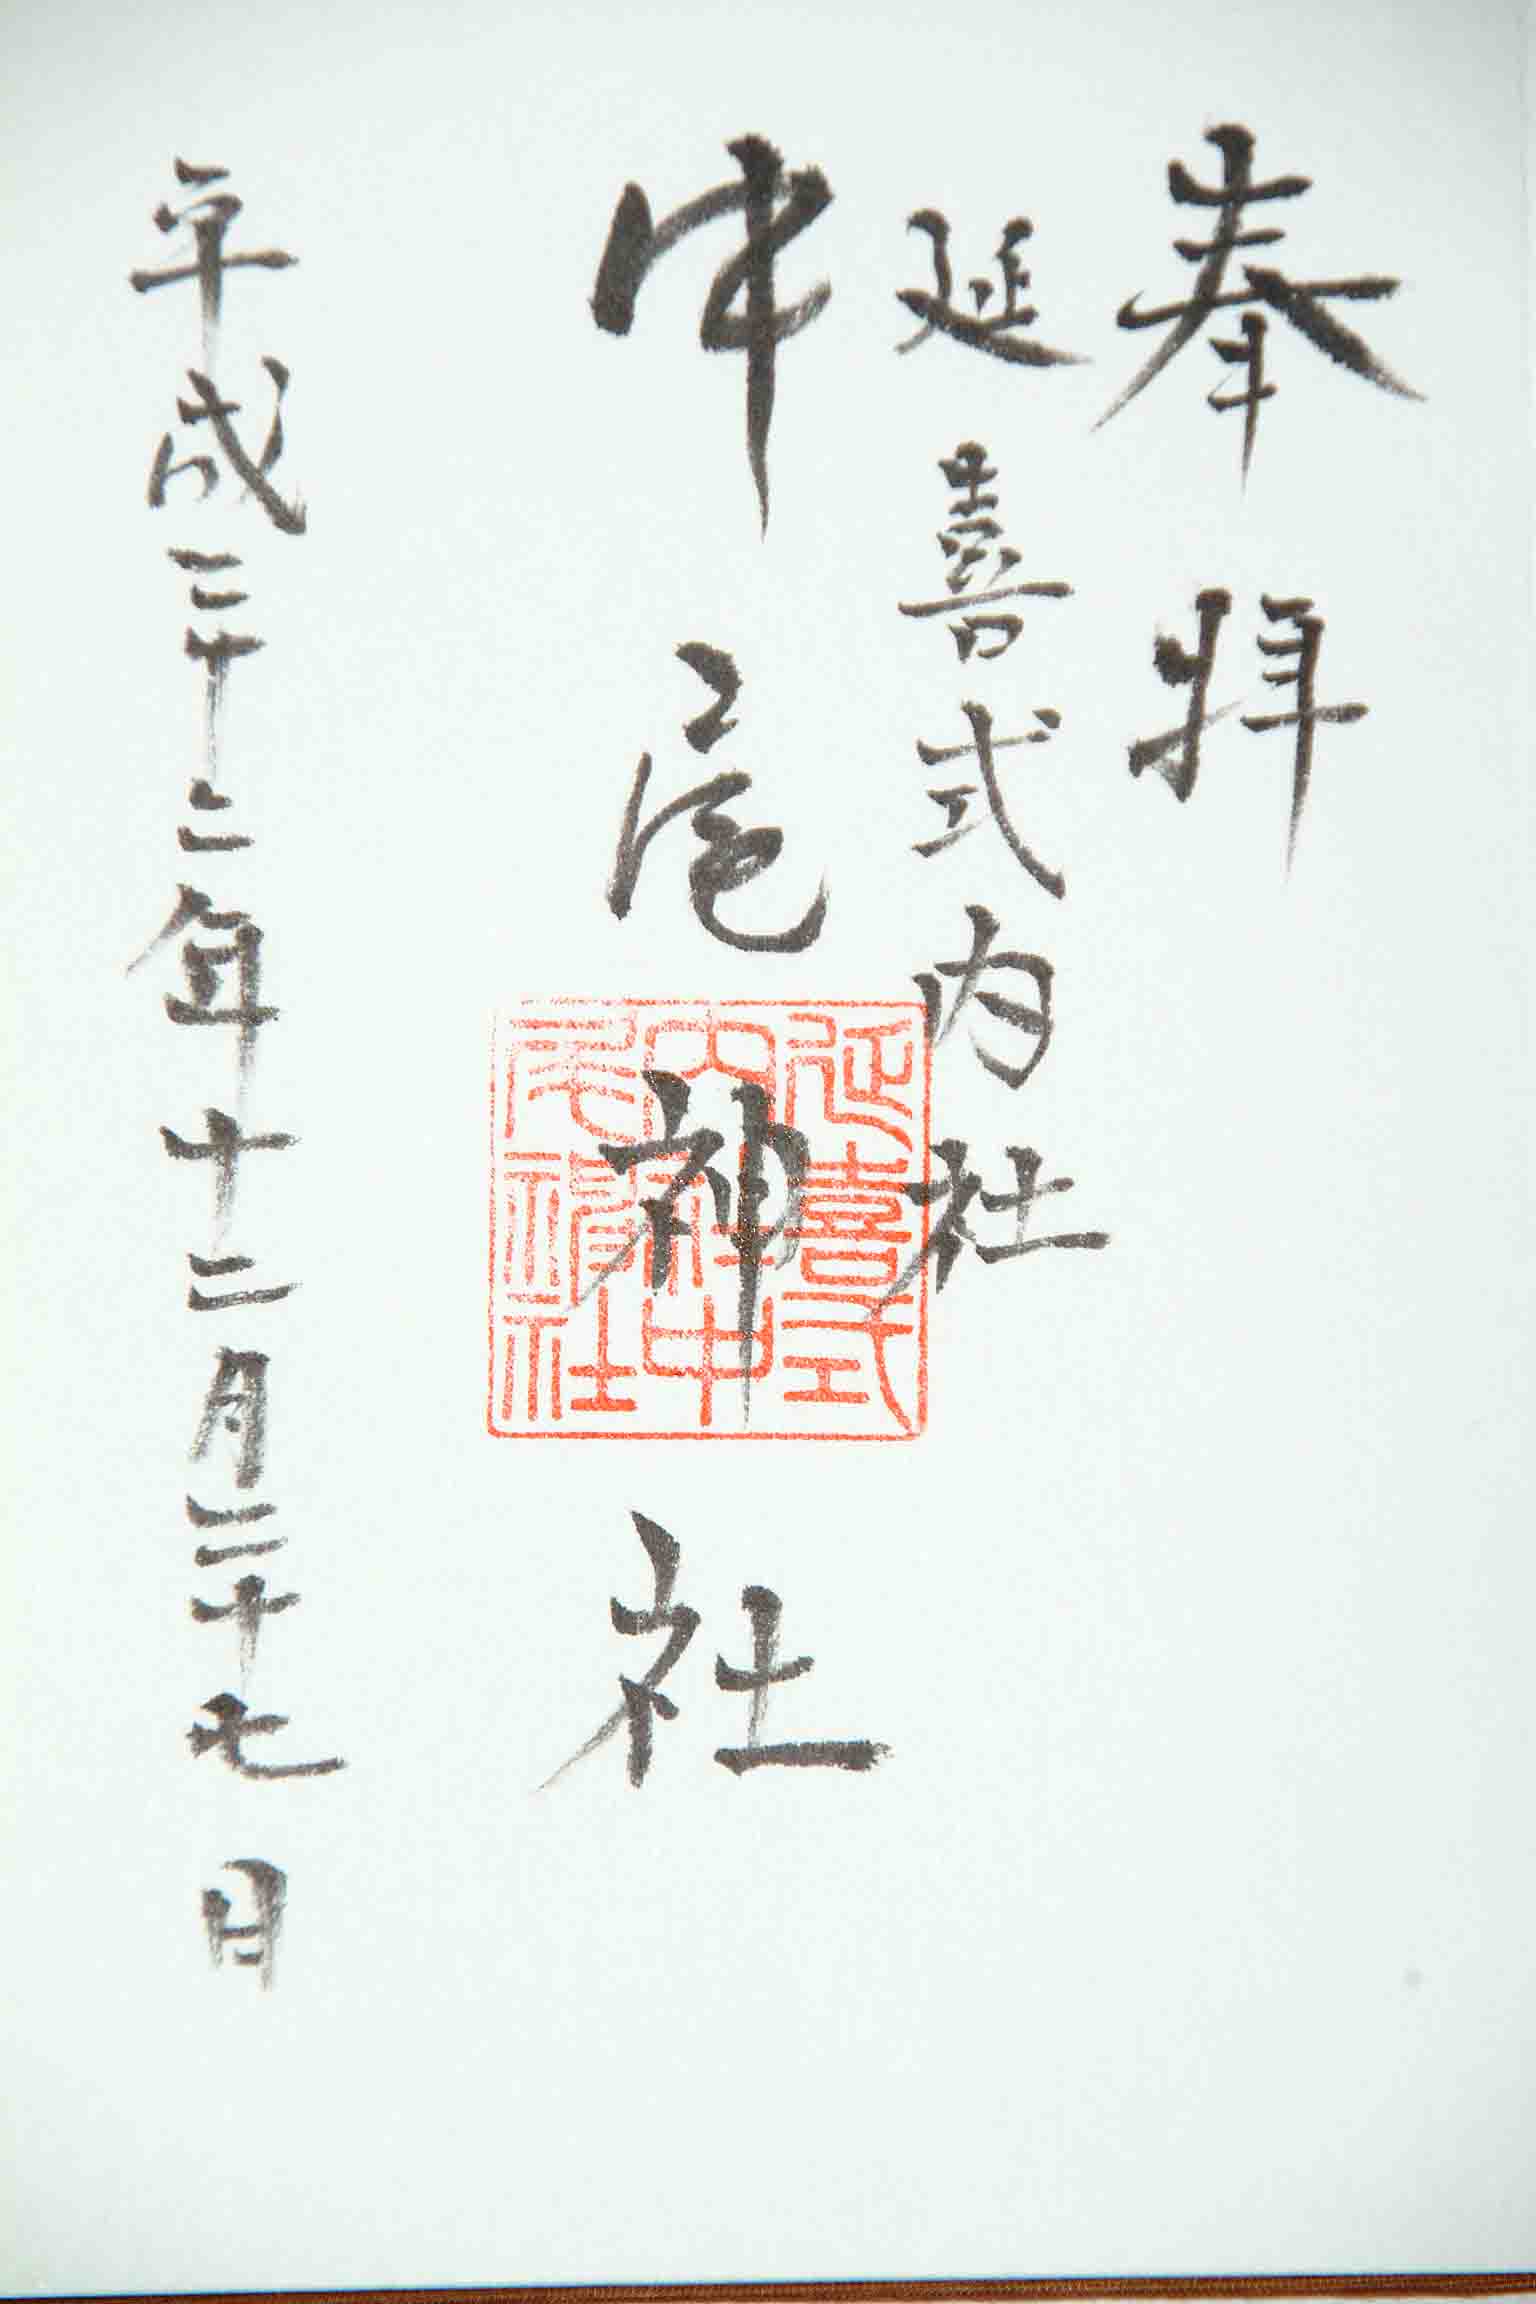 奉拝
延喜式内社
中尾神社
平成二十二年十二月二十七日
延喜式
内社中
尾神社